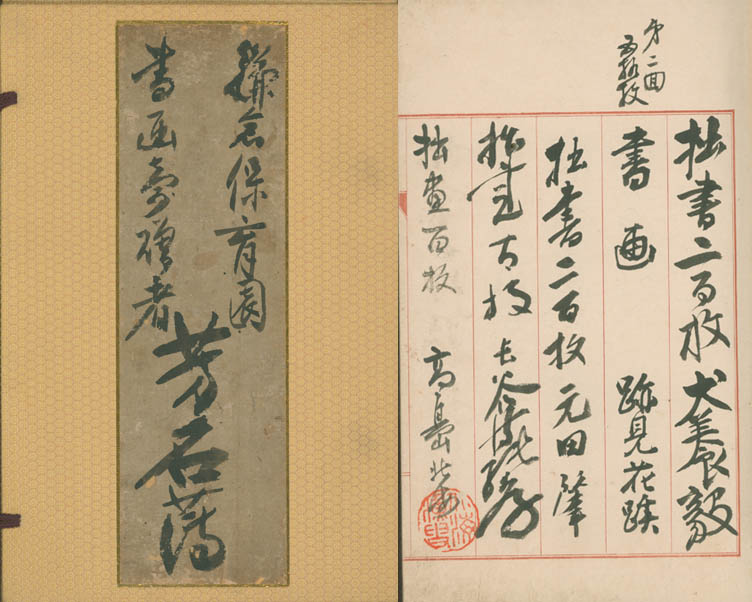 鎌倉保育園
書画寄贈者
芳名簿
第二回
五拾枚
拙書二百枚 犬養毅
書画 跡見花蹊
拙書二百枚 元田肇
拙画百枚
拙画百枚 高島北海